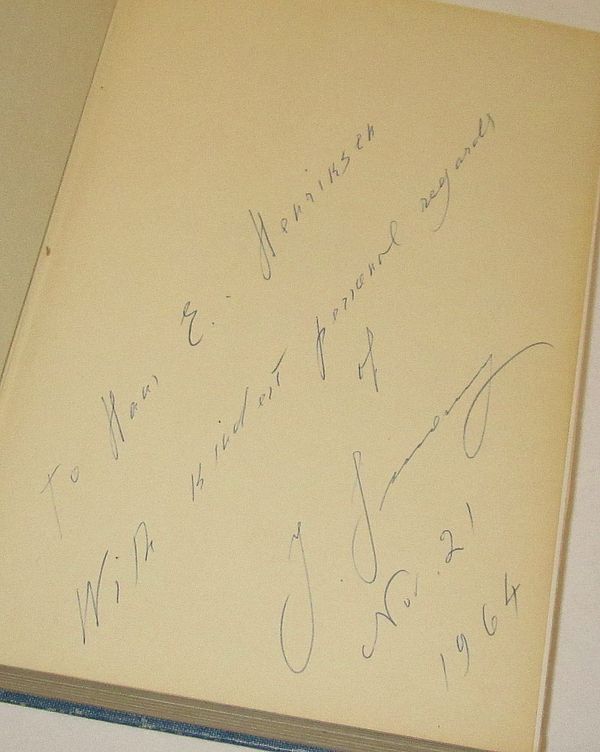 To Hans E. Henriksen
With kindest personal regards
of
Nov. 21
1964